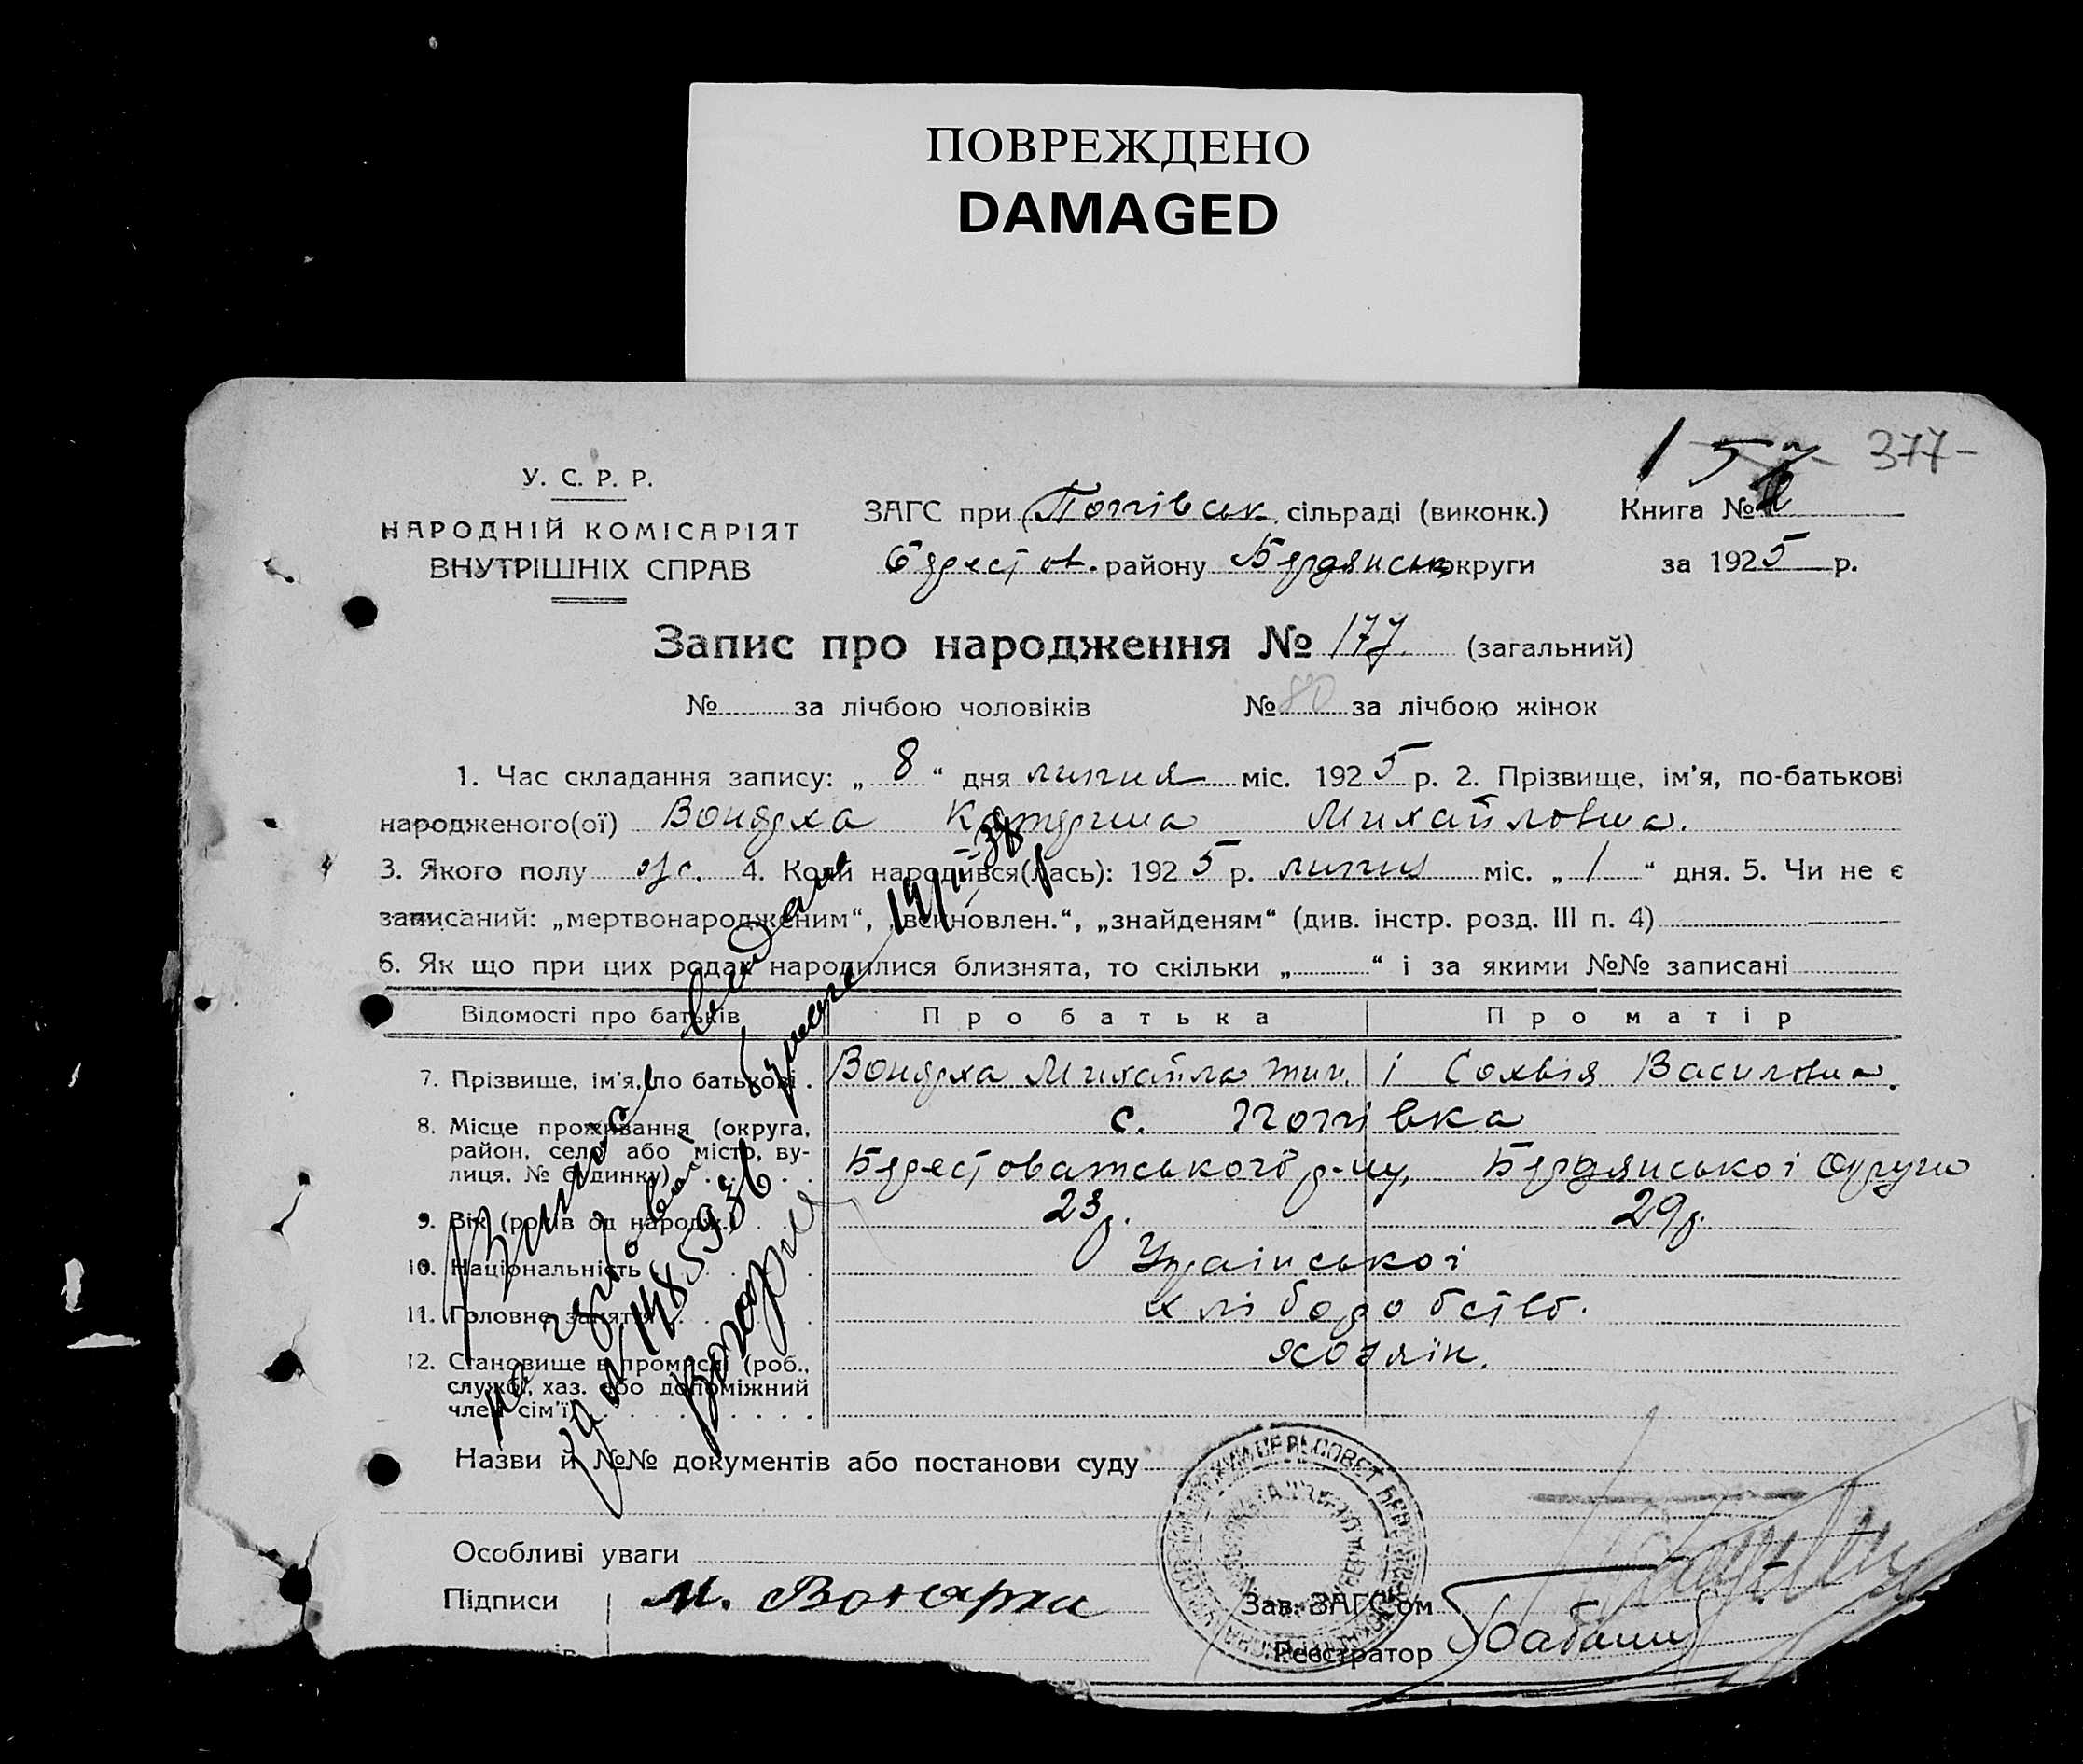 ПОВРЕЖДЕНО
DAMAGED
157 377-
У. С. Р. Р.
НАРОДНІЙ КОМІСАРІЯТ
ВНУТРІШНІХ СПРАВ
ЗАГС при Попівськ. сільраді (виконк.)
Берестов. району Бердянськ округи
Книга №
за 1925 р.
Запис про народження № 177. (загальний)
№ за лічбою чоловіків № 80 за лічбою жінок
1. Час складання запису: „ 8 “ дня липня міс. 1925 р. 2. Прізвище, ім'я, по-батькові
народженого(ої) Вонярха Катерина Михайловна.
3. Якого полу ж. 4. Коли народився(лась): 1925 р. липня міс. „ 1 “ дня. 5. Чи не є
записаний: „мертвонародженим“, „всиновлен.“, „знайденям“ (див. інстр. розд. III п. 4)
6. Як що при цих родах народилися близнята, то скільки „ “ і за якими №№ записані
Відомості про батьків Про батька Про матір
7. Прізвище, ім'я, по батькові . Вонярха Михайла Тим. і Сохвія Василовна.
8. Місце проживання (округа, с. Попівка
район, село або місто, ву-
лиця. № будинку) Берестоватського р-ну, Бердянської округи
9. Вік (років од народж.) 23р. 29р.
10. Національність Української
11. Головне заняття хлібороbство.
12. Становище в промислі (роб., хозяін.
службі, хаз. або допоміжний
член сім'ї)
Выпись выдана
на
за № 1485936
Назви й №№ документів або постанови суду
Особливі уваги
Підписи М. Вонярха Зав. ЗАГС'ом
Реєстратор